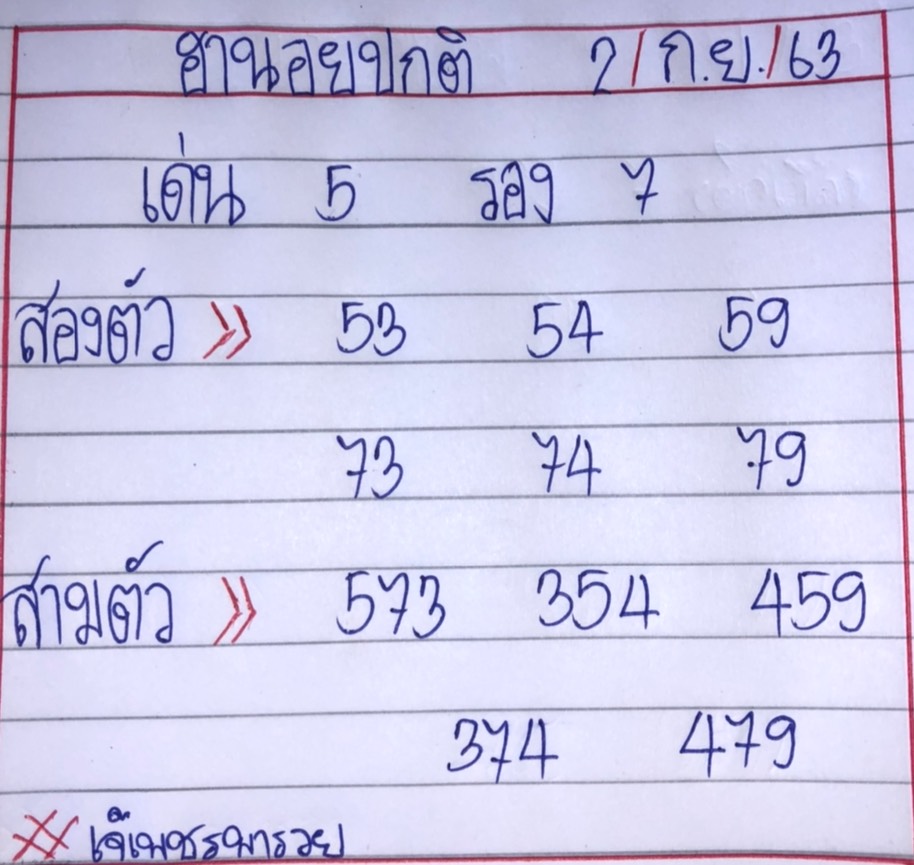 ฮานอยปกติ 2/ก.ย./63
เด่น 5 รอง 7
สองตัว >> 53 54 59
73 74 79
สามตัว >> 573 354 459
374 479
เจ๊เพชรพารวย